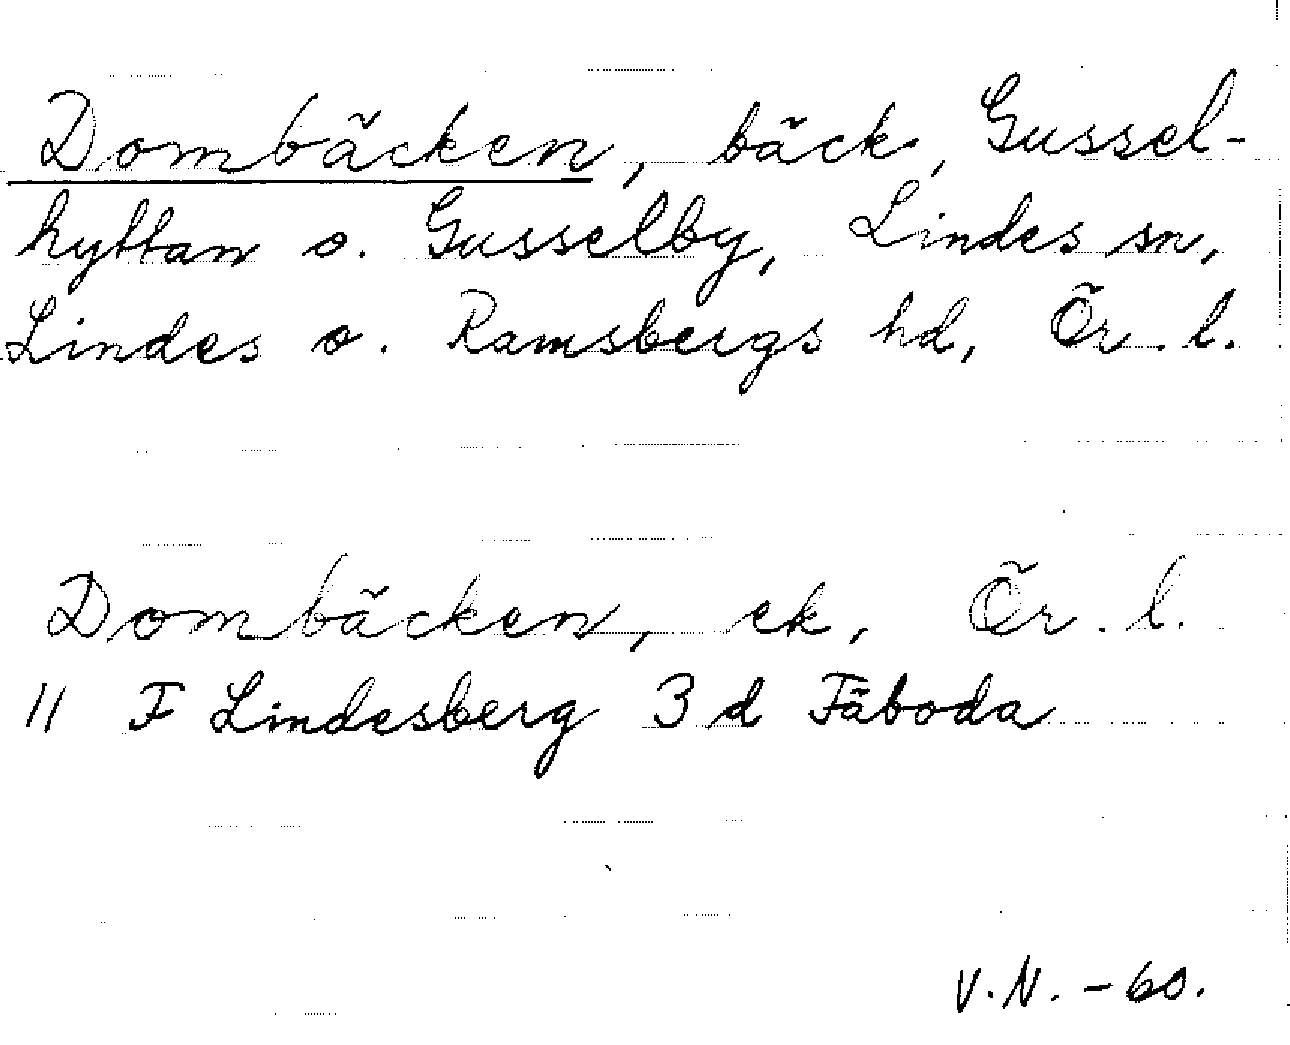 Dombäcken, bäck, Gussel-
hyttan o. Gusselby, Lindes sn,
Lindes o. Ramsbergs hd, Ör. l.
Dombäcken, ek, Ör. l.
11 F Lindesberg 3 d Fäboda
V.N. -60.